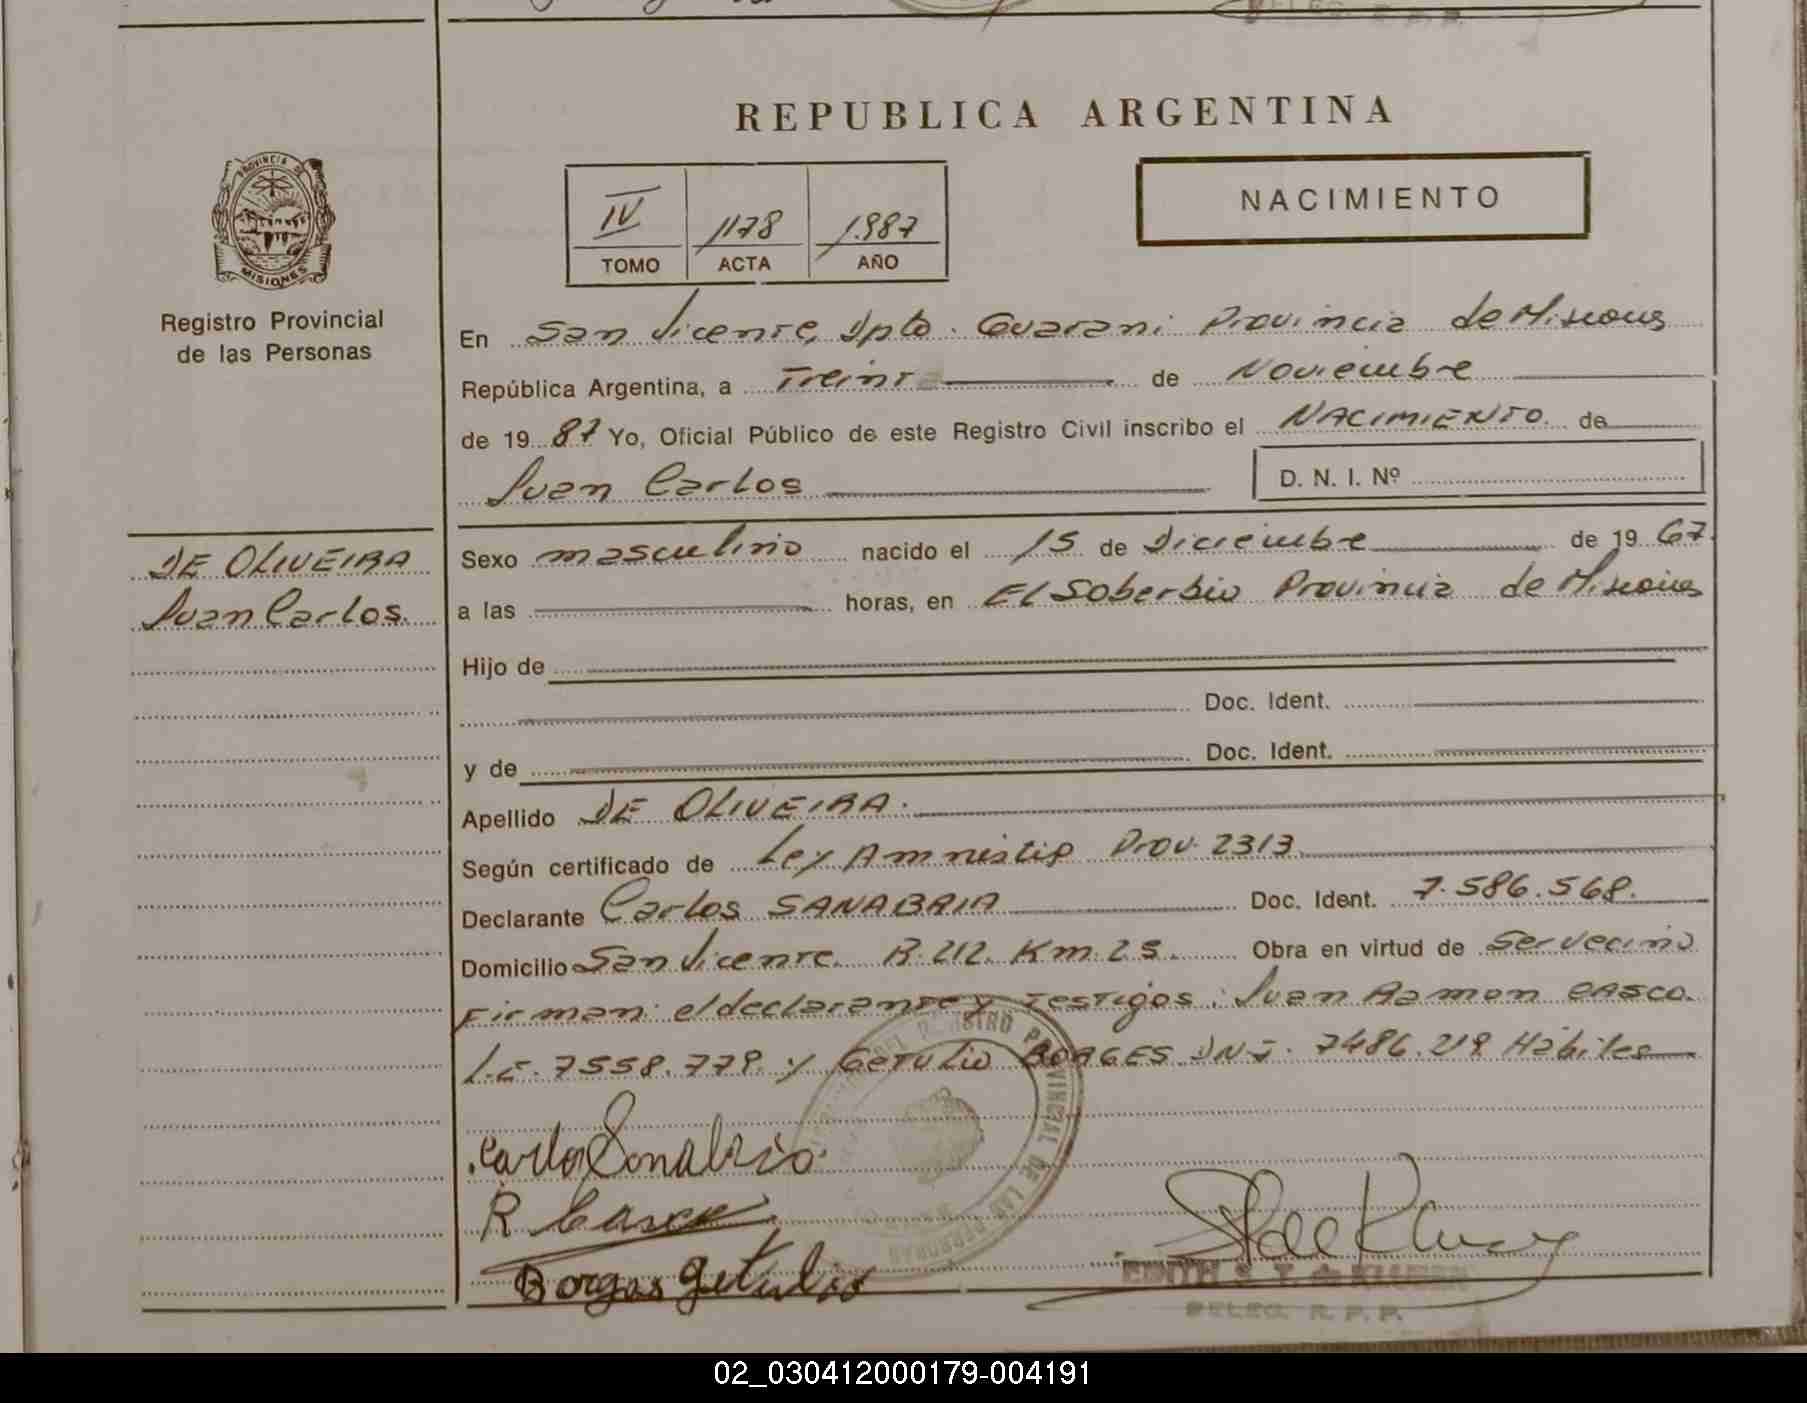 REPUBLICA ARGENTINA
PROVINCIA DE
MISIONES
Registro Provincial
de las Personas
IV 1178 1.987
TOMO ACTA AÑO
NACIMIENTO
En San Vicente, Dpto. Guarani Provincia de Misiones
República Argentina, a Treinta de Noviembre
de 1987 Yo, Oficial Público de este Registro Civil inscribo el NACIMIENTO de
Juan Carlos D. N. I. Nº
DE OLIVEIRA
Juan Carlos.
Sexo masculino nacido el 15 de Diciembre de 1967.
a las horas, en El Soberbio Provincia de Misiones
Hijo de
Doc. Ident.
y de Doc. Ident.
Apellido DE OLIVEIRA.
Según certificado de Ley Amnistia Prov. 2313
Declarante Carlos SANABRIA Doc. Ident. 7.586.568.
Domicilio San Vicente. R. 212. Km. 25. Obra en virtud de Ser vecino
Firman: el declarante y Testigos: Juan Ramon CASCO.
L.E. 7558.779. y Getulio BORGES DNI. 7486.219 Hábiles
Carlos Sanabria.
R Casco
Borges Getulio
REGISTRO PROVINCIAL DE LAS PERSONAS
EDITH S. T. de KLUSEN
DELEG. R. P. P.
02_030412000179-004191